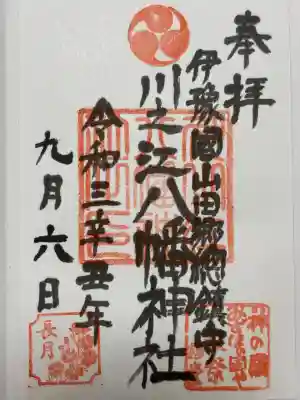 奉拝
伊豫國山田郷總鎮守
川之江八幡神社
令和三辛丑年
九月六日
長月